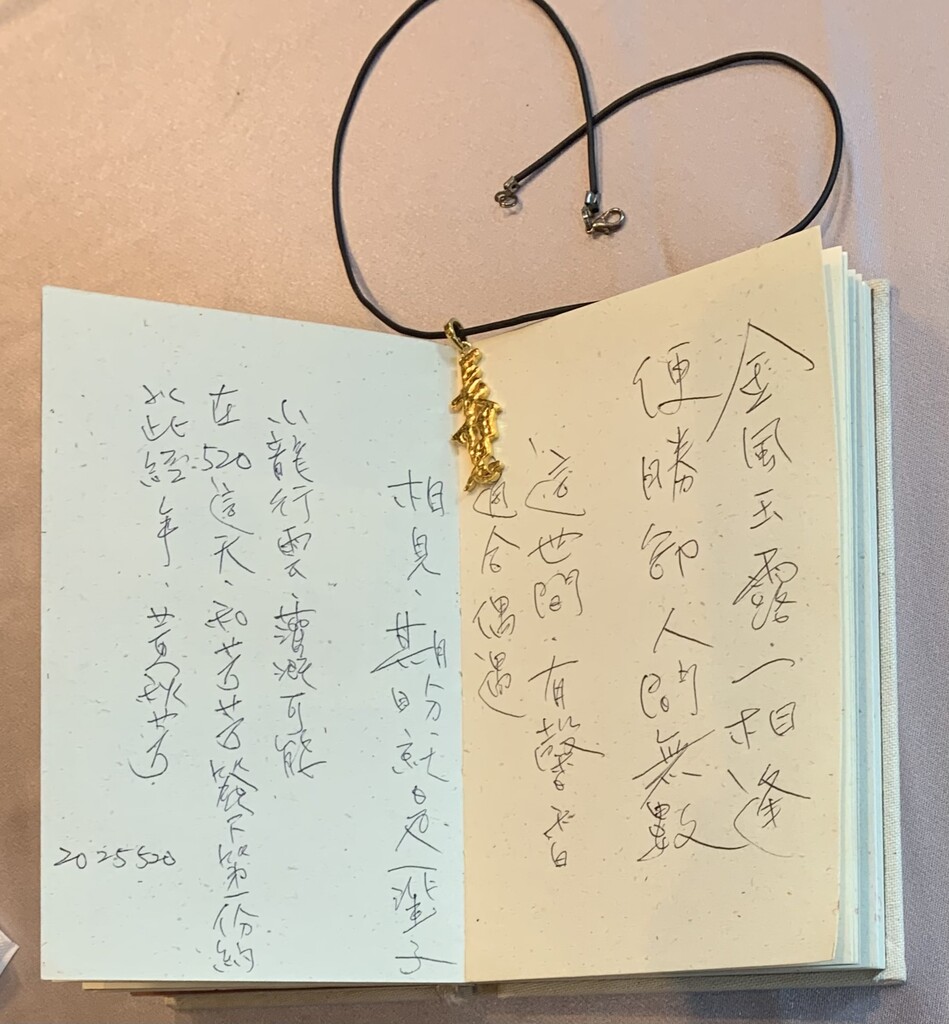 金風玉露一相逢
便勝卻人間無數
這世間、有聲音
適合偶遇
相見、其時就是一輩子
小龍行雲、灌溉可能
在520這天、和芳芳簽下第一份約
此經年、黃秋芳
2025520